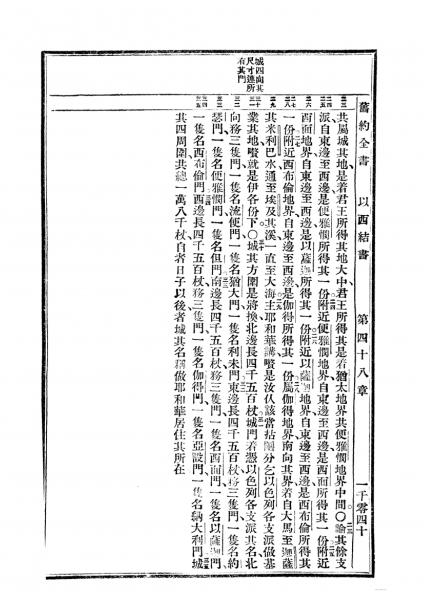 舊約全書　以西結書　第四十八章　一千零四十
城四向其
尺寸逹所
有其門
共屬城其地是若君王所得其地大中君王所得其是着猶太地界共便雅憫地界中間〇論其餘支
派自東邊至西邊是便雅憫所得其一份附近便雅憫地界自東邊至西邊是西面所得其一份附近
西面地界自東邊至西邊是以薩迦所得其一份附近以薩迦地界自東邊至西邊是西布倫所得其
一份附近西布倫地界自東邊至西邊是伽得所得其一份屬伽得地界南向其界着自大馬至迦薩
其米利巴水通至埃及其溪一直至大海主耶和華講嚽是汝伙該當拈鬮分乞以色列各支派做基
業其地嚽就是伊各份下〇城其方圍是將換北邊長四千五百杖城門着憑以色列各支派其名北
向務三隻門一隻名流便門一隻名猶大門一隻名利未門東邊長四千五百杖務三隻門一隻名約
瑟門一隻名便雅憫門一隻名但門南邊長四千五百杖務三隻門一隻名西面門一隻名以薩迦門
一隻名西布倫門西邊長四千五百杖務三隻門一隻名伽得門一隻名亞設門一隻名納大利門城
其四周圍共總一萬八千杖自者日子以後者城其名稱做耶和華居住其所在